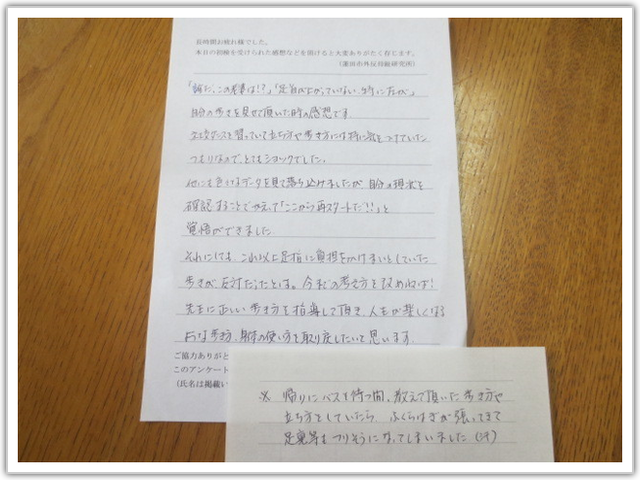 長時間お疲れ様でした。
本日の初検を受けられた感想などを頂けると大変ありがたく存じます。
(蓮田市外反母趾研究所)
「誰だ、この老婆は!?」「足首が上がっていない、特に左が」
自分の歩きを見せて頂いた時の感想です
社交ダンスを習っていて立ち方や歩き方には特に気をつけていた
つもりなので、とてもショックでした。
他にも色々なデータを見て落ち込みましたが 自分の現状を
確認することでかえって「ここから再スタートだ!!」と
覚悟ができました
それにしても、これ以上足指に負担をかけまいとしていた
歩きが反対だったとは。今までの考え方を改めねば!
先生に正しい歩き方を指導して頂き、人生が楽しくなる
ような歩き方、身体の使い方を取り戻したいと思います。
ご協力ありがと
このアンケート
(氏名は掲載い
※ 帰りにバスを待つ間、教えて頂いた歩き方や
立ち方をしていたら ふくらはぎが張ってきて
足裏等もつりそうになってしまいました(汗)